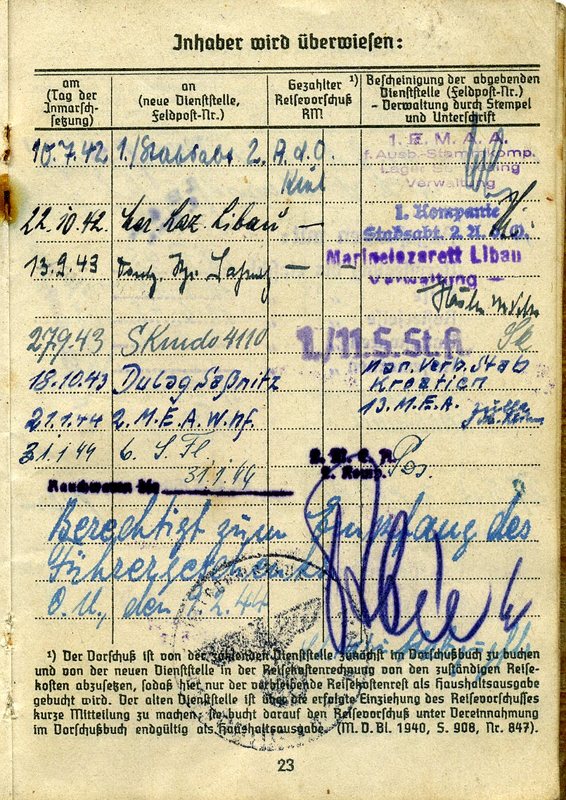 Inhaber wird überwiesen:
am
(Tag der
Inmarsch-
setzung)
an
(neue Dienststelle,
Feldpost-Nr.)
Gezahlter ¹)
Reisevorschuß
RM
Bescheinigung der abgebenden
Dienststelle (Feldpost-Nr.)
– Verwaltung durch Stempel
und Unterschrift
10.7.42 1./Stabsabt. 2. A.d.O.
Kiel
1. E. M. A. A.
f. Ausb.-Stammkomp.
Lager
Verwaltung
22.10.42 Laz. Libau —
1. Kompanie
Stabsabt. 2. A.d.O.
13.9.43 —
Marinelazarett Libau
Verwaltung
27.9.43 SKmdo 4110
1./11.S.St.A.
18.10.43 Dulag Saßnitz
Mar. Verb. Stab
Kroatien
21.1.44 2. M.E.A. W.hf.
13. M.E.A.
31.1.44 6. S.Fl
31.1.44
2. M. E. A.
2. Komp.
Rauchwaren bis
Berechtigt zum Empfang des
Führergeschenks
O.U., den 7.2.44
¹) Der Vorschuß ist von der zahlenden Dienststelle zunächst im Vorschußbuch zu buchen
und von der neuen Dienststelle in der Reisekostenrechnung von den zuständigen Reise-
kosten abzusetzen, sodaß hier nur der verbleibende Reisekostenrest als Haushaltsausgabe
gebucht wird. Der alten Dienststelle ist über die erfolgte Einziehung des Reisevorschusses
kurze Mitteilung zu machen, sie bucht darauf den Reisevorschuß unter Vereinnahmung
im Vorschußbuch endgültig als Haushaltsausgabe. (M. D. Bl. 1940, S. 908, Nr. 847).
23